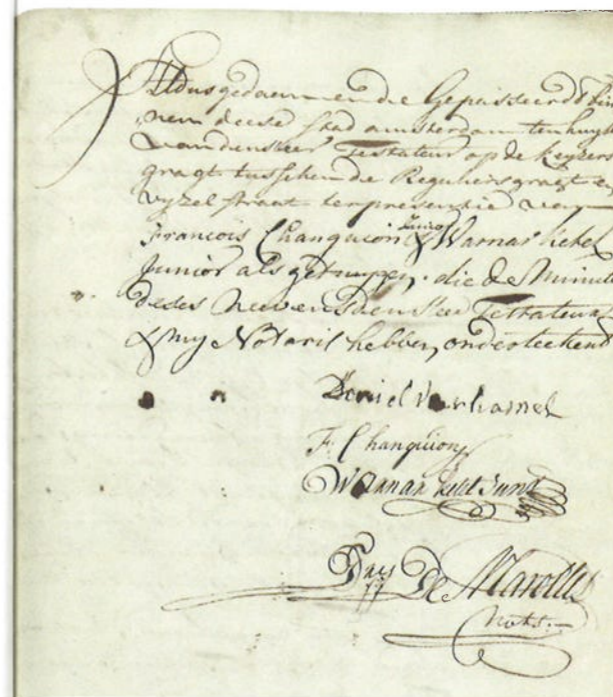 Aldus gedaen ende Gepasseerdt bin
nen deese stad amsterdam ten huyse
van den Heer Testateur op de Keyzers
gragt tusschen de Reguliersgragt e
vyzelstraat ter presentie van
Francois Changuion Junior & Warnar Ketel
Junior als getuygen, die de Minute
deses nevens den Heer Testateur
& my Notaris hebben, onderteekend
Daniel
F. Changuion
Warnar Ketel Junr
De Marolles
Nots.